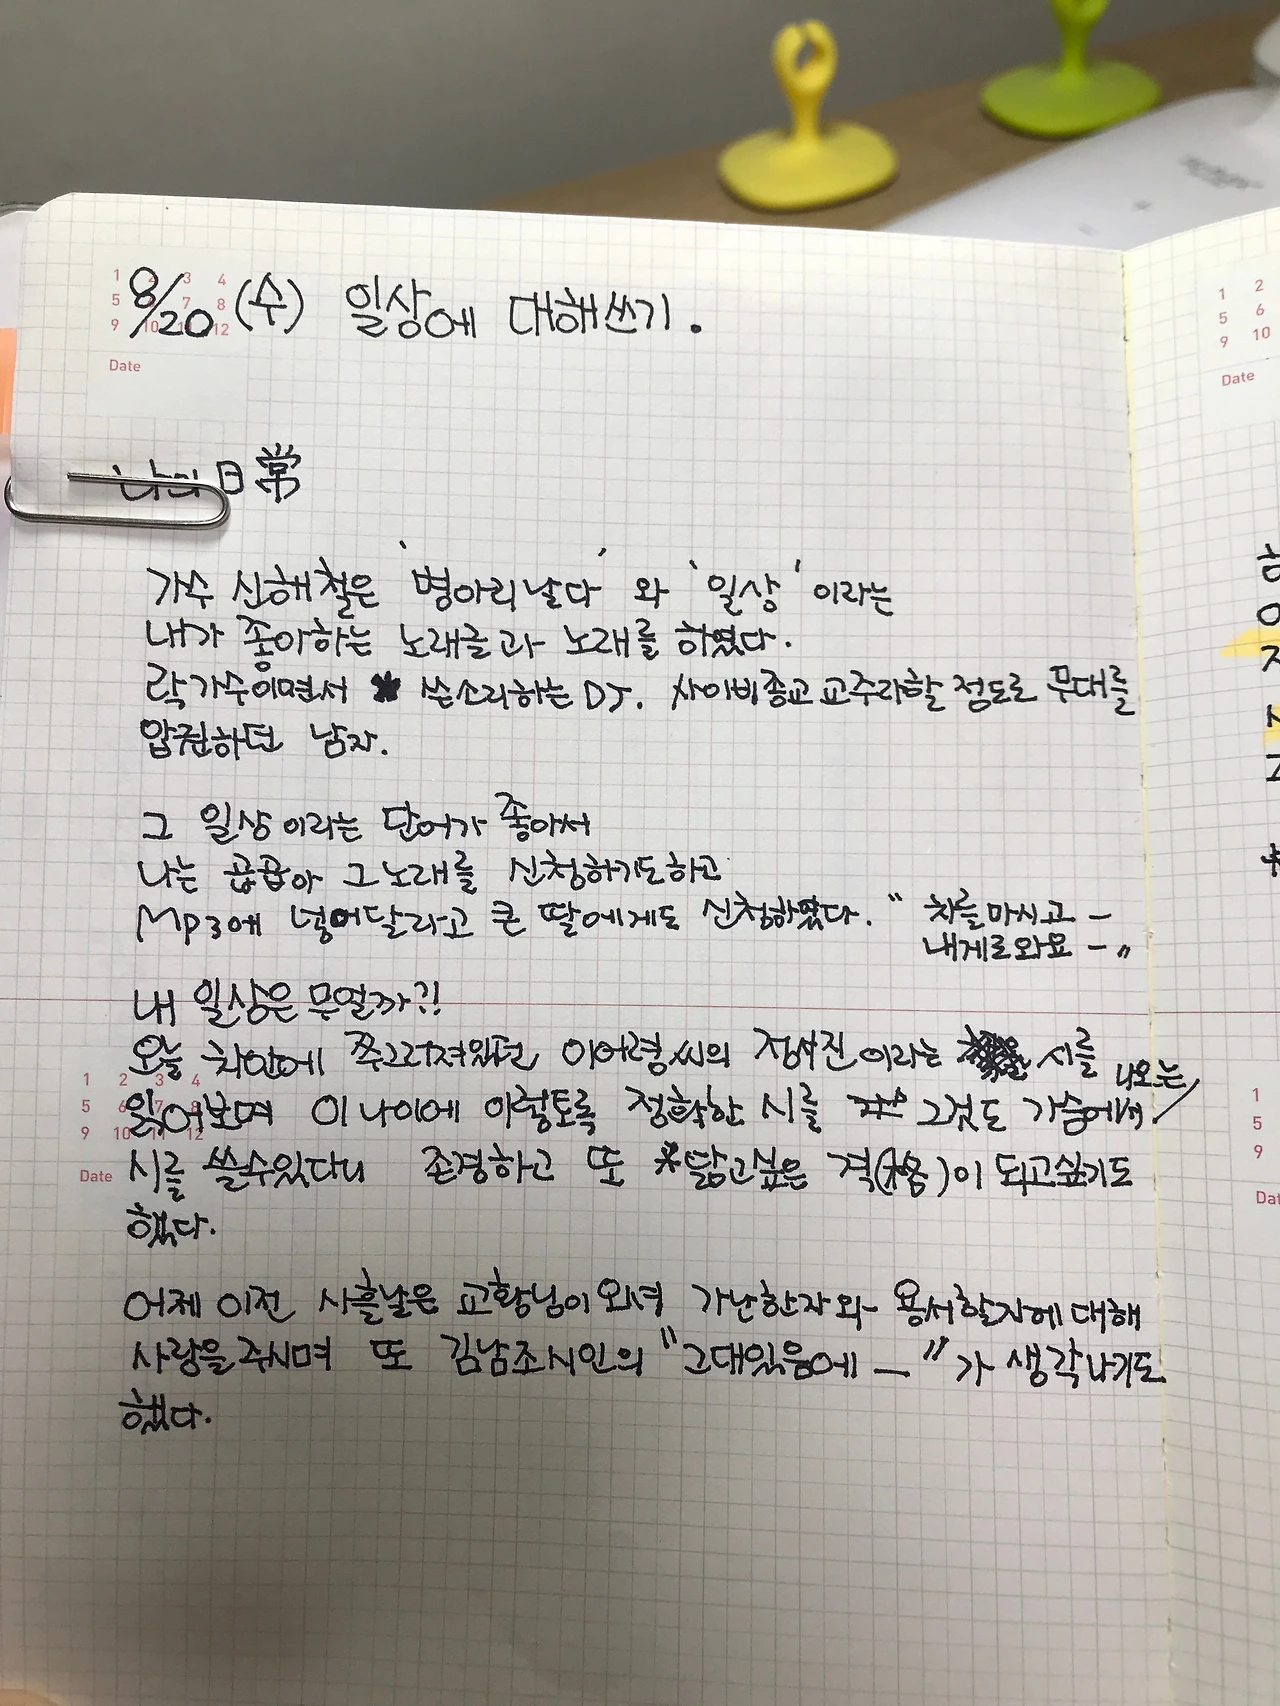 8/20 (수) 일상에 대해쓰기.
나의 日常
가수 신해철은 '병아리날다' 와 '일상' 이라는
내가 좋아하는 노래글과 노래를 하였다.
락가수이면서 쓴소리하는 DJ. 사이비종교 교주라할 정도로 무대를
압권하던 남자.
그 일상이라는 단어가 좋아서
나는 곱곱아 그노래를 신청하기도하고
Mp3에 넣어달라고 큰 딸에게도 신청하였다. " 차를마시고 -
내게로와요 - "
내 일상은 무얼까?!
오늘 차안에 쭈그러져있던 이어령씨의 정사진 이라는 시를
읽어보며 이 나이에 이렇토록 정확한 시를 그것도 가슴에서 나오는
시를 쓸수있다니 존경하고 또 닮고싶은 격( )이 되고싶기도
했다.
어제 이전 사흘날은 교황님이 오셔 가난한자와 용서할자에 대해
사랑을 주시며 또 김남조시인의 "그대있음에 -" 가 생각나기도
했다.
1 2 3 4
5 6 7 8
9 10 11 12
Date
1 2 3 4
5 6 7 8
9 10 11 12
Date
1 2
5 6
9 10
Date
1
5
9
Dat